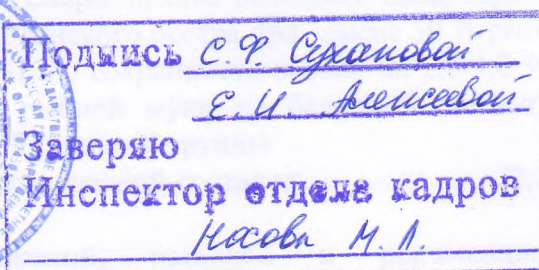 Подпись С.Ф. Сухановой
Е.И. Алексеевой
Заверяю
Инспектор отдела кадров
Носова М.Л.